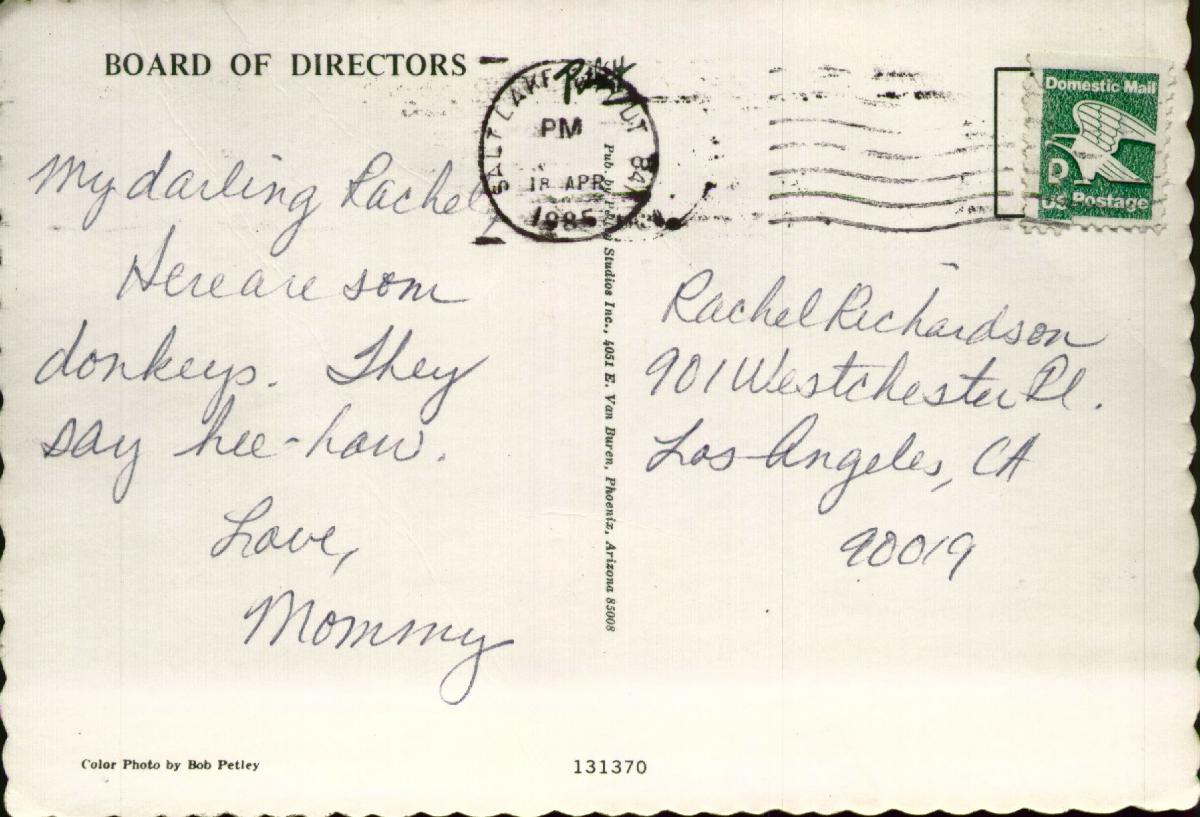 BOARD OF DIRECTORS
SALT LAKE UT 841
PM
18 APR
1985
Domestic Mail
D
US Postage
My darling Rachel,
Here are som
donkeys. They
say hee-haw.
Love,
Mommy
Pub. by Studios Inc., 4051 E. Van Buren, Phoenix, Arizona 85008
Rachel Richardson
901 Westchester Pl.
Los Angeles, CA
90019
Color Photo by Bob Petley
131370